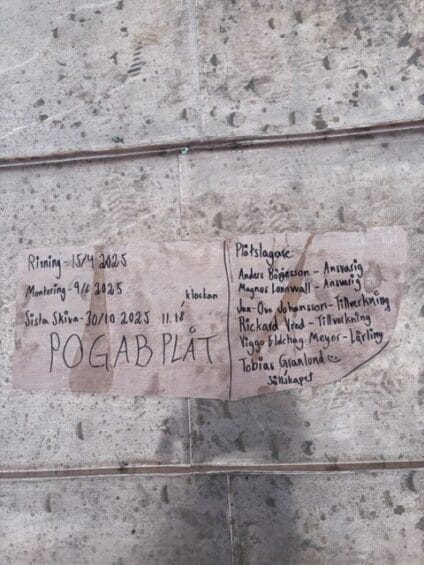 Rivning - 15/4 2025
Montering - 9/6 2025
Sista Skiva - 30/10 2025 klockan 11.18
POGAB PLÅT
Plåtslagare:
Anders Börjesson - Ansvarig
Magnus Lennwall - Ansvarig
Jan-Ove Johansson - Tillverkning
Rickard Vred - Tillverkning
Viggo Eldehag Meyer - Lärling
Tobias Granlund
Sällskapet